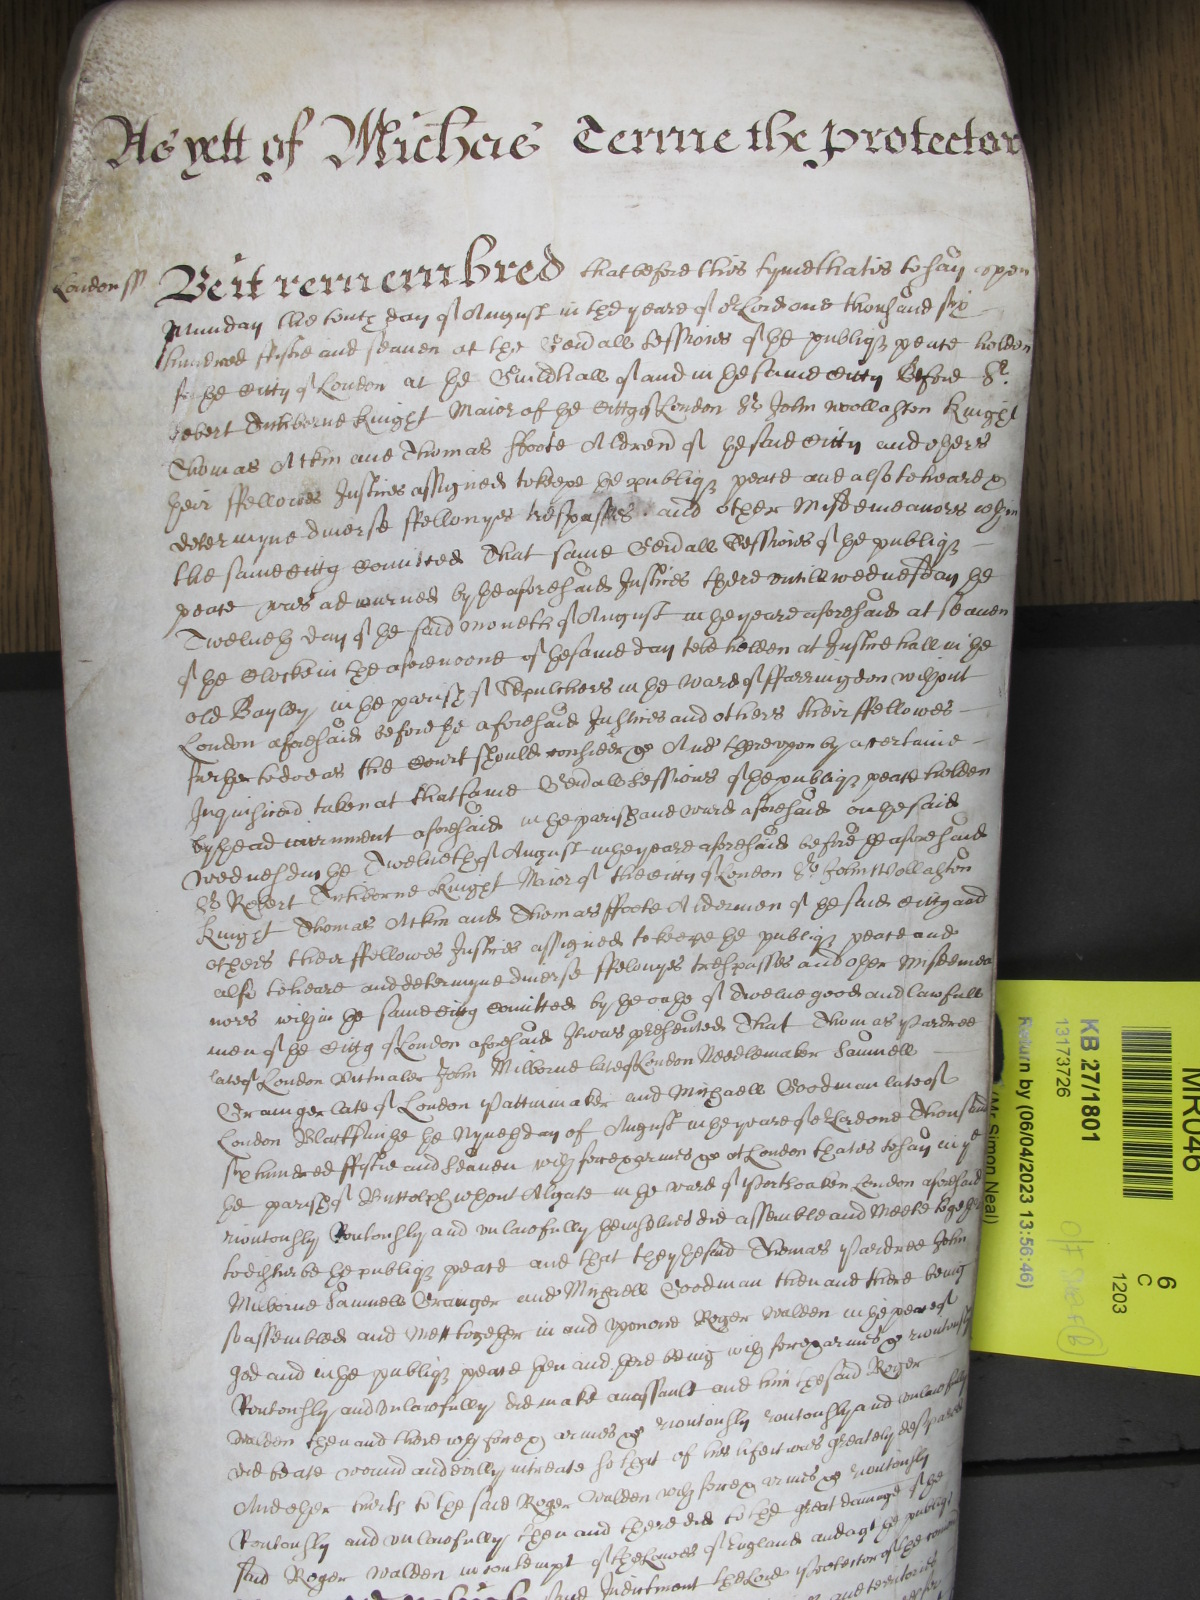 As yett of Michas Terme the Protector
London ss Be it remembred that before this tyme that is to say upon
Munday the tenth day of August in the yeare of or Lord one thousand six
hundred fiftie and seaven at the Genall Sessions of the publiq peace holden
for the Citty of London at the Guildhall of and in the same Citty Before Sr.
Robert Titchborne Knight Maior of the Citty of London Sr John Wollaston Knight
Thomas Atkin and Thomas Foote Aldren of the said Citty and others
their ffellowes Justices assigned to keepe the publiq peace and also to heare &
determyne diverse ffellonyes trespasses and other Misdemeanors within
the same Citty Comitted That same Genall Sessions of the publiq
peace was adiourned by the aforesaid Justices there untill Wednesday the
Twelueth day of the said moneth of August in the yeare aforesaid at seaven
of the Clocke in the aforenoone of the same day to be holden at Justice hall in the
old Bayley in the parish of Sepulchers in the Ward of ffarringdon without
London aforesaid before the aforesaid Justices and others their ffellowes
further to doe as the Court should consider &c And thereupon by a certaine
Inquisicon taken at that same Genall Sessions of the publiq peace holden
by the adiournment aforesaid in the parish and ward aforesaid on the said
Wednesday the Twelueth of August in the yeare aforesaid before the aforesaid
Sr Robert Titchborne Knight Maior of the Citty of London Sr John Wollaston
Knight Thomas Atkin and Thomas ffoote Aldermen of the said Citty and
others their ffellowes Justices assigned to keepe the publiq peace and
also to heare and determyne diverse ffelonyes trespasses and other Misdemea
nors within the same Citty Comitted by the oathe of twelve good and lawfull
men of the Citty of London aforesaid It was presented That Thomas Pardree
late of London Vittualer John Milborne late of London Needlemaker Samuell
Grainger late of London Pattinmaker and Michaell Goodman late of
London Blacksmithe the Nyneth day of August in the yeare of or Lord one Thousand
six hundred fiftie and Seaven with force & armes &c at London that is to say in ye
the parish of Buttolph without Algate in the ward of Portsoaken London aforesaid
rioutously Routously and unlawfully themselves did assemble and meete together
to disturbe the publiq peace and that they the said Thomas Pardree John
Milborne Samuell Granger and Michaell Goodman then and there being
so assembled and mett together in and upon one Roger Walden in the peace of
god and in the publiq peace then and there being with force & armes &c rioutously
Routously and unlawfully did make an assault and him the said Roger
Walden then and there with force & armes &c rioutously routously and unlawfully
did beate wound and evilly intreate so that of his life it was greately despaired
And other hurts to the said Roger Walden with force & armes &c rioutously
Routously and unlawfully then and there did to the great damage of the
said Roger Walden in contempt of the Lawes of England and agt the publiq
said Indictment the Lord Protector of the
and territories
MR046
6
C
1203
KB 27/1801
13173726
Return by (06/04/2023 13:56:46)
(Mr Simon Neal)